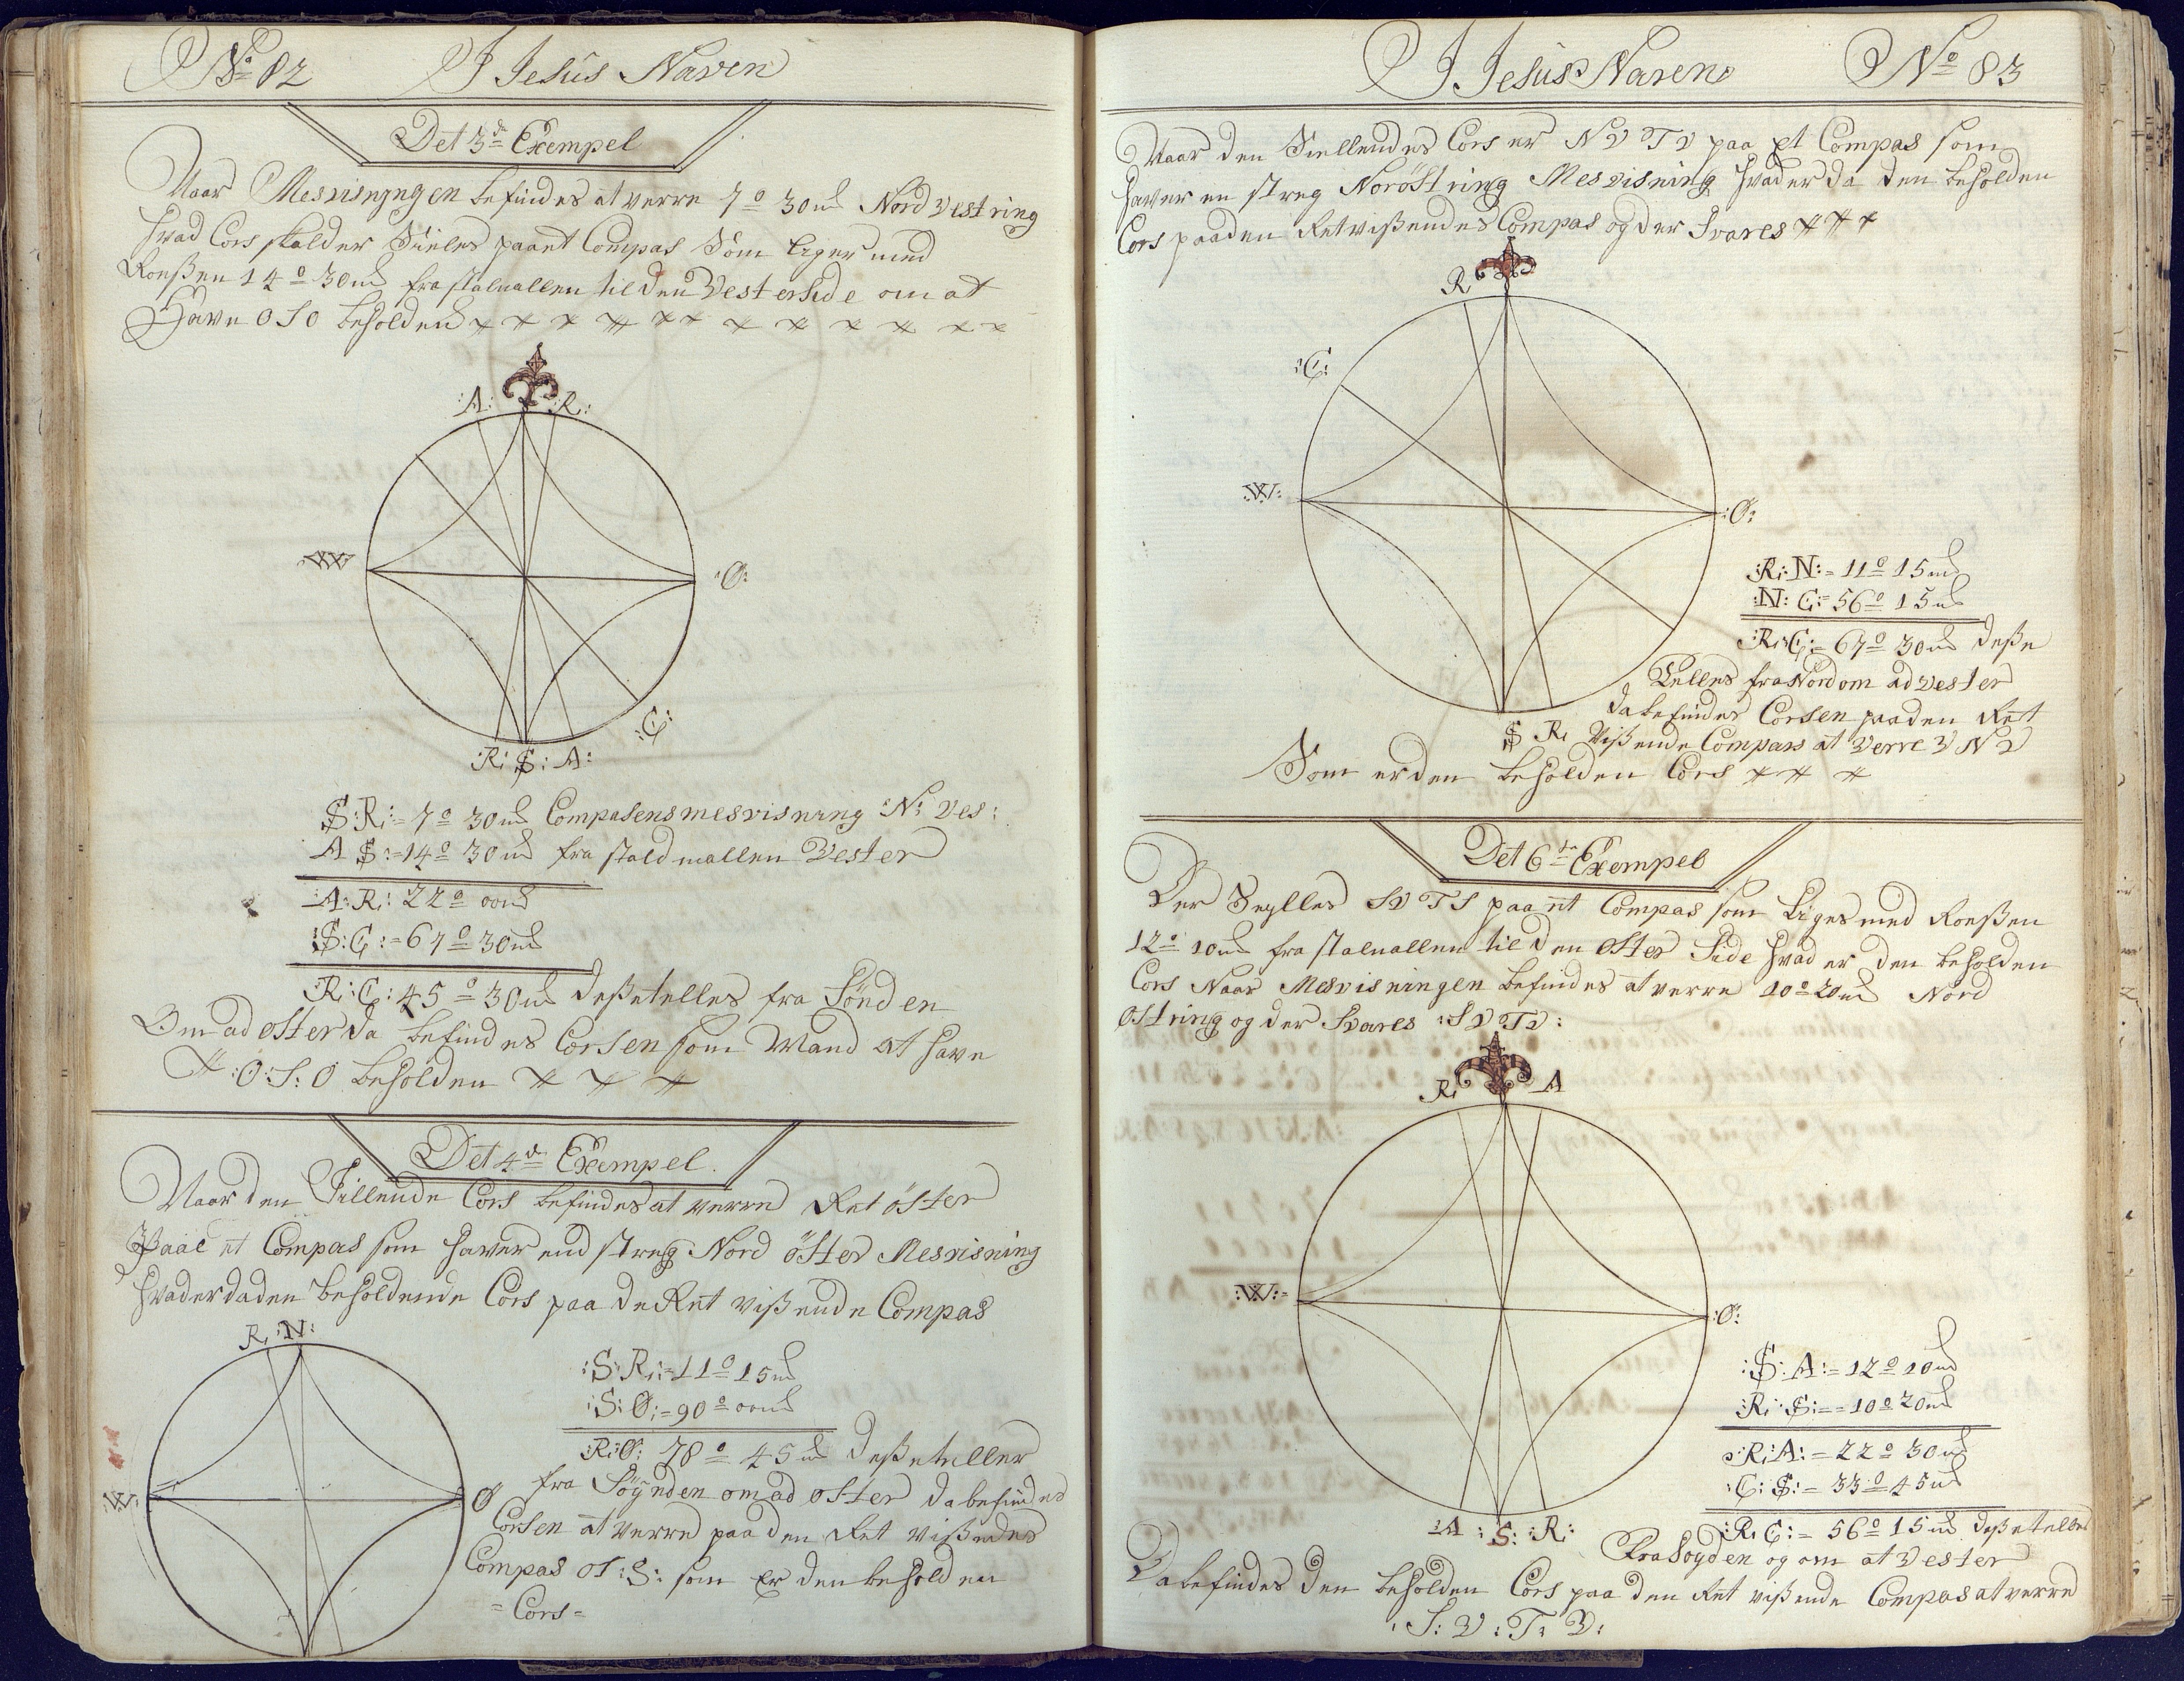 No 82 I Jesus Naven
Det 3de Exempel
Naar Mesvisningen befindes at verre 7o 30m Nord Vestring
Hvad Cors skal der Siiles paa et Compas Som liger med
Roeßen 14o 30m fra staluallen til den Vester Side om at
Have OSO beholden
A: R:
W Ø:
C:
R: S: A:
S:R:= 7o 30m Compasens mesvisning N: Ves:
A S:=14o 30m fra stald nallen Vester
A:R: 22o 00m
S:C:=67o 30m
R:C: 45o 30m deße telles fra Sønden
Om ad øster da befindes Corsen som Mand at have
O:S:O beholden
Det 4de Exempel.
Naar den Sillende Cors befindes at verre Ret öster
Paae et Compas som haver end streg Nord öster Mesvisning
hvad er da den beholdende Cors paa de Ret vißende Compas
R: N:
:S:R:=11o 15m
:S:Ø:=90o 00m
:R:Ø: 78o 45m deße teller
fra Söynden om ad oster da befindes
W: Ø
Corsen at verre paa den Ret vißendes
Compas OT:S: som Er den beholden
=Cors=
I Jesus Naven No 83
Naar den Siellendes Cors er NVTV paa et Compas som
haver en streg Noröstring Mesvisning hvad er da den beholden
Cors paa den Retvißendes Compas og der Svares
R
:C:
W: :Ø:
:R:N:= 11o 15m
:N:C:= 56o 15m
:R:C:= 67o 30m deße
telles fra Nord om ad vester
da befindes Corsen paa den Ret
S R: vißende Compas at Verre VNV
Som er den beholden Cors
Det 6te Exempel
Der Seylles SVTS paa et Compas som Liges med Roeßen
12o 10m fra staluallen til den Öster Side hvad er den beholden
Cors Naar Mesvisningen befindes at verre 10o 20m Nord
Ostring og der Svares :SVTV:
R: A
W: :Ø:
:S:A:=12o 10m
:R:S:==10o 20m
:R:A:=22o 30m
:C:S:= 33o 45m
A :S: :R: :R:C:= 56o 15m deße telles
Fra Soyden og om at Vester
Da befindes den beholden Cors paa den Ret vißende Compas at verre
:S:V:T:V: